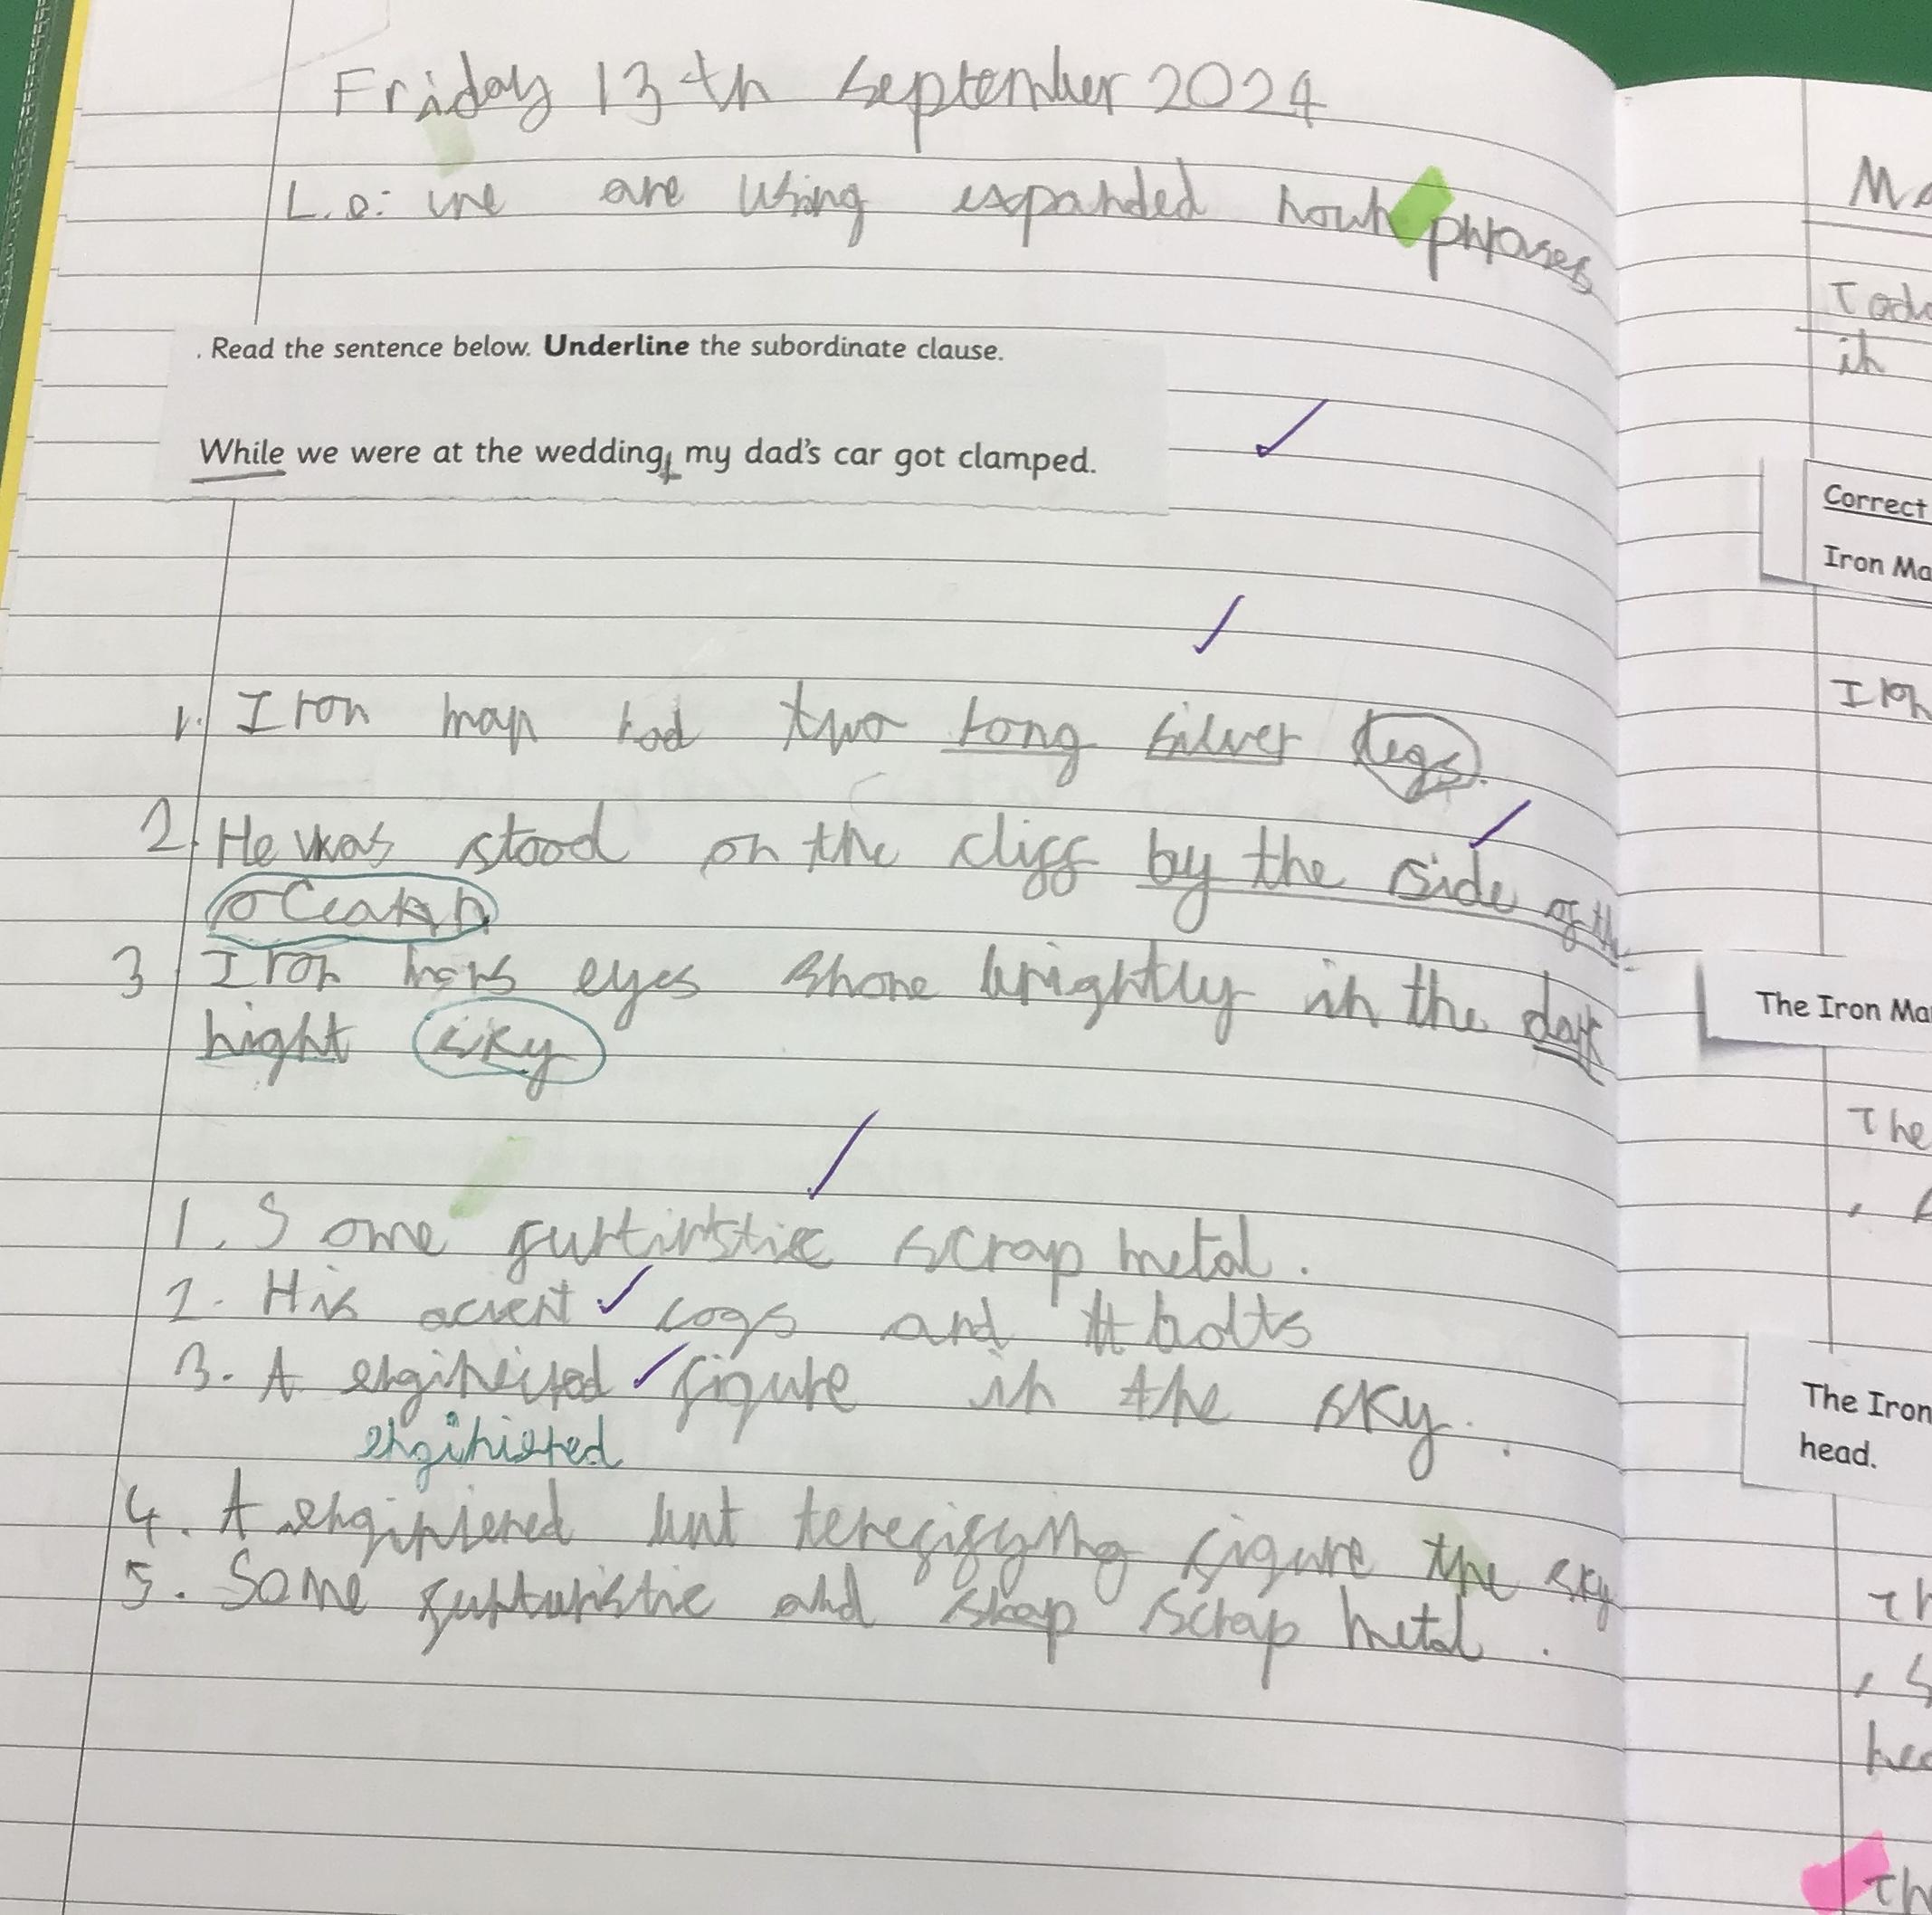 Friday 13th September 2024
L.o: we are using expanded noun phrases
. Read the sentence below. Underline the subordinate clause.
While we were at the wedding, my dad's car got clamped.
1. Iron man had two long silver legs.
2. He was stood on the cliff by the side of the
ocean
3 Iron mans eyes shone brightly in the dark
night sky
1. Some scrap metal.
2. His acient cogs and bolts
3. A figure in the sky.
4. A but figure the sky
5. Some and scrap metal.
Ma
Toda
in
Correct
Iron Ma
Iron
The Iron Ma
The
The Iron
head.
Th
, S
hea
Th